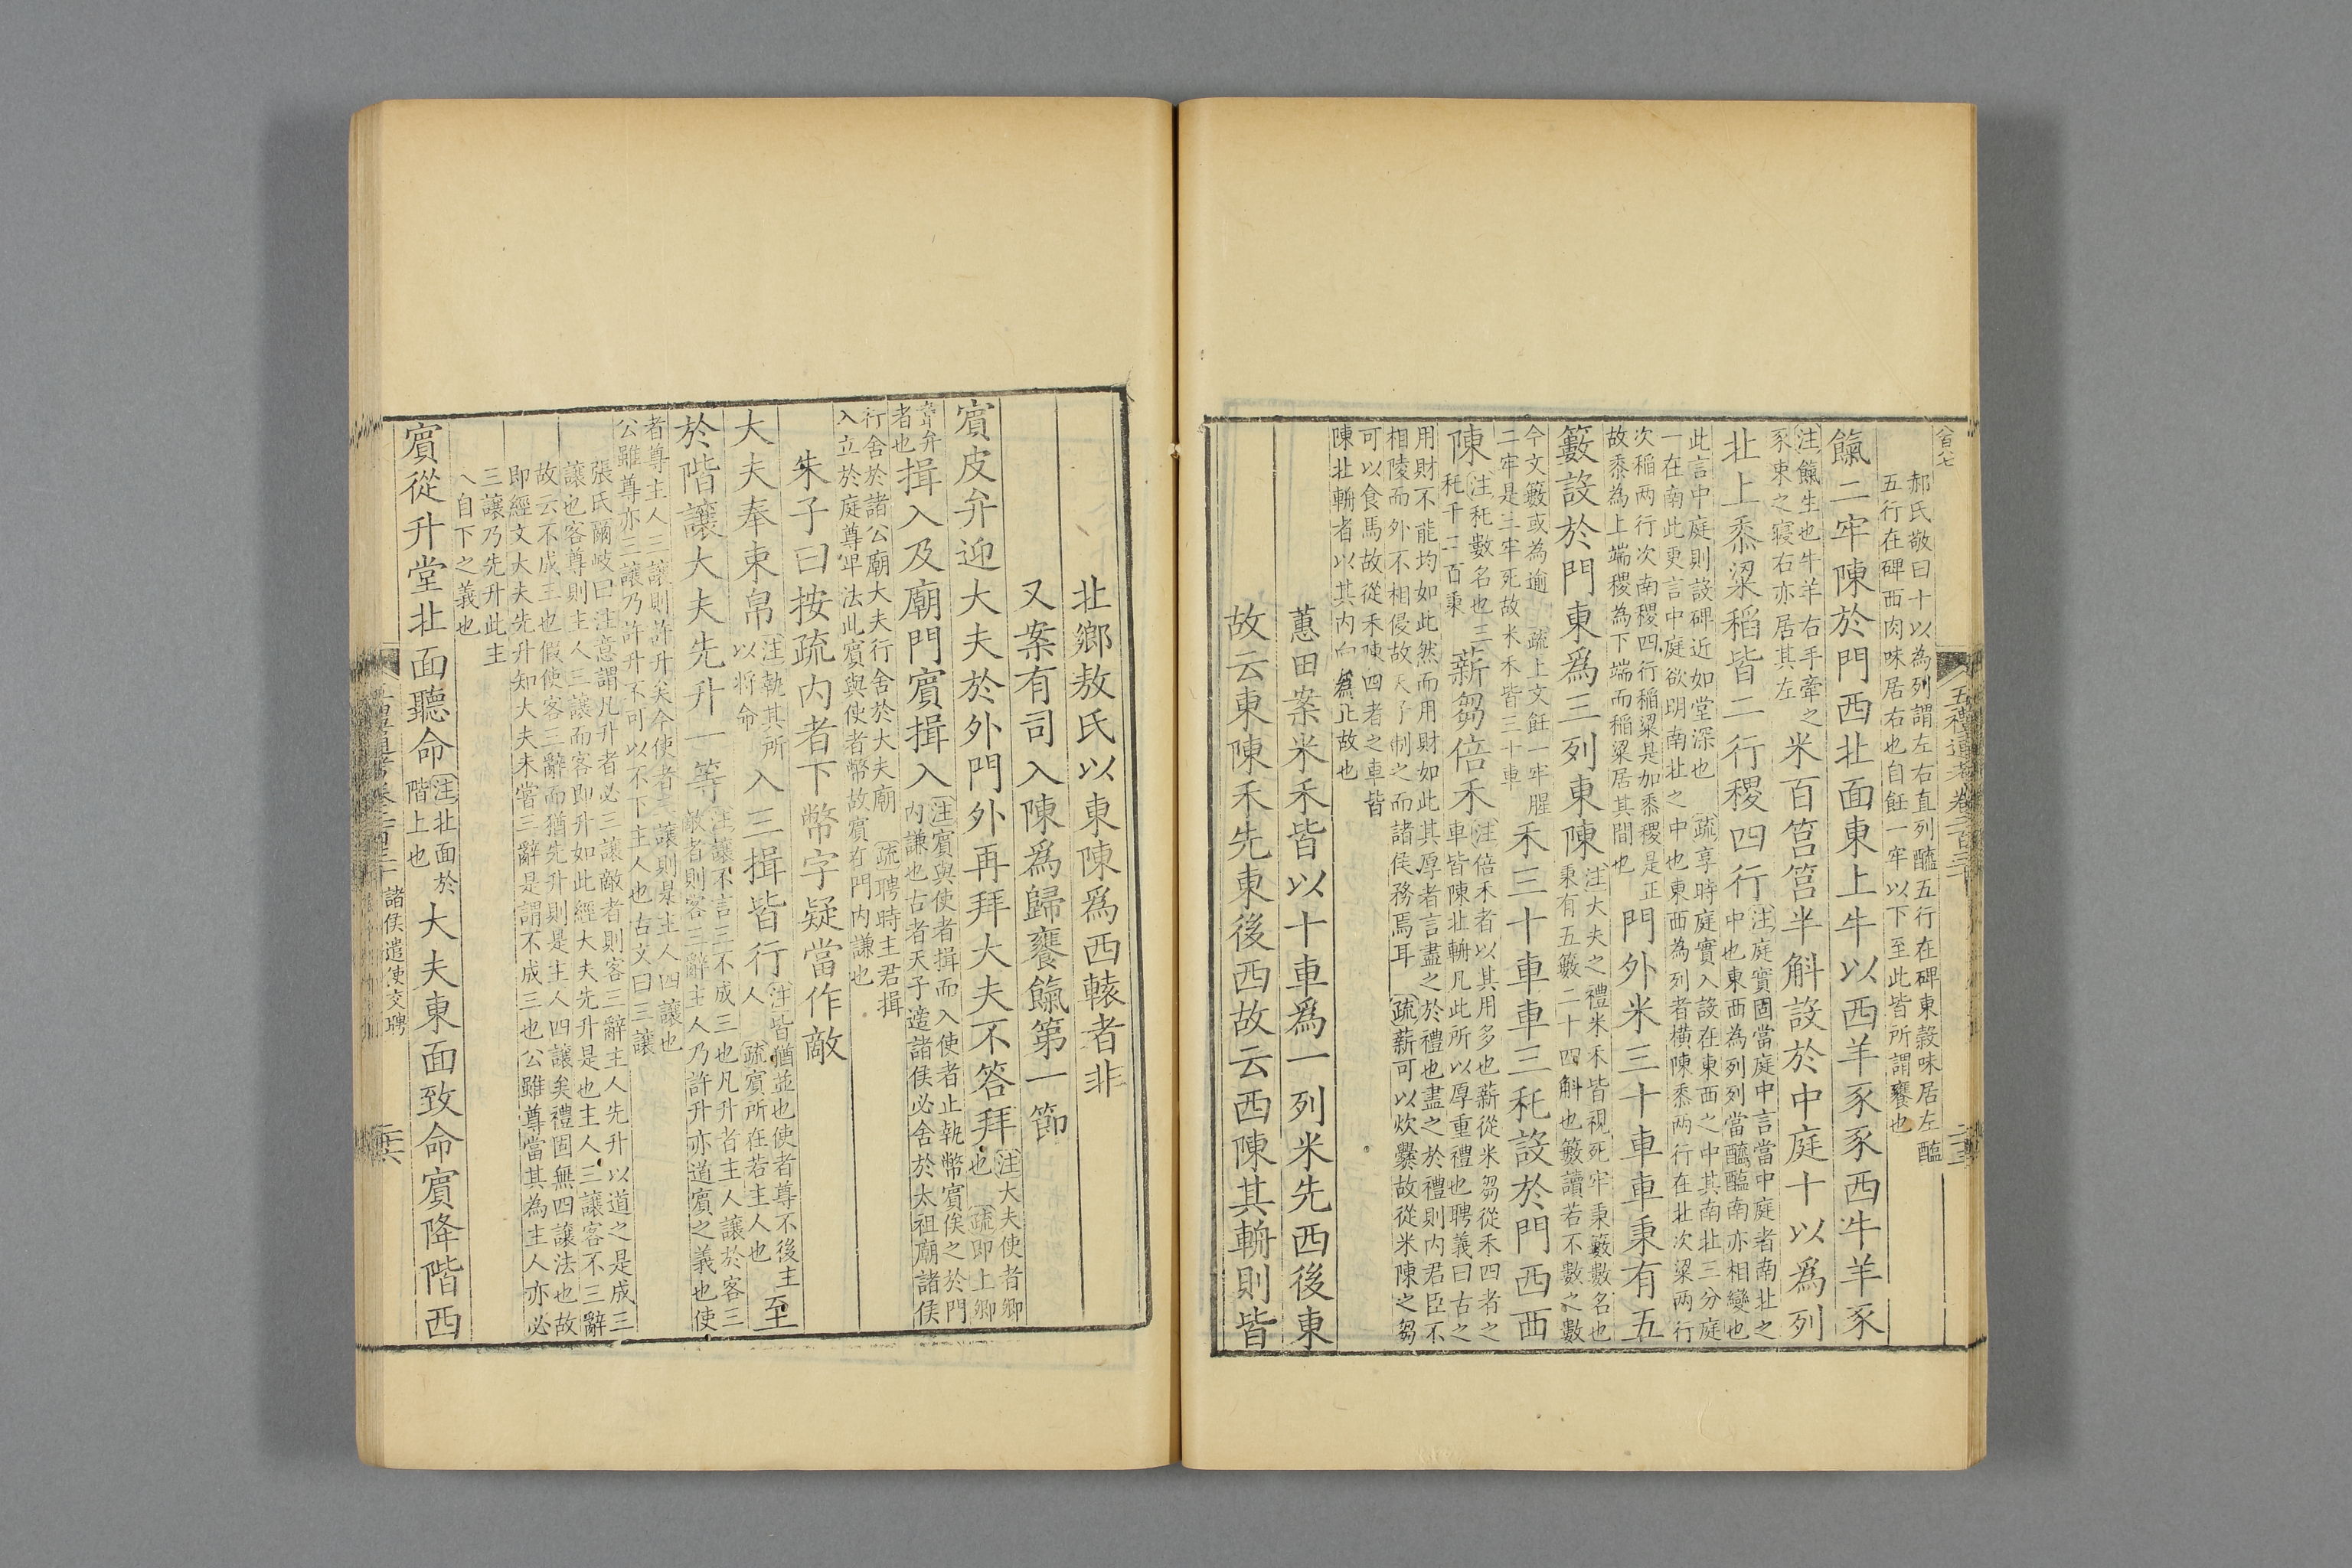 郝氏敬曰十以為列謂左右直列醯五行在碑東穀味居左醢
五行在碑西肉味居右也自飪一牢以下至此皆所謂饔也
餼二牢陳於門西北面東上牛以西羊豕豕西牛羊豕
注餼生也牛羊右手牽之
豕束之寢右亦居其左
米百筥筥半斛設於中庭十以爲列
北上黍粱稻皆二行稷四行
注庭實固當庭中言當中庭者南北之
中也東西為列列當醯醢南亦相變也
此言中庭則設碑近如堂深也
疏享時庭實入設在東西之中其南北三分庭
一在南此更言中庭欲明南北之中也東西為列者橫陳黍两行在北次粱两行
次稻两行次南稷四行稻粱是加黍稷是正
故黍為上端稷為下端而稻粱居其間也
門外米三十車車秉有五
籔設於門東爲三列東陳
注大夫之禮米禾皆視死牢秉籔數名也
秉有五籔二十四斛也籔讀若不數之數
今文籔或為逾
疏上文飪一牢腥
二牢是三牢死故米禾皆三十車
禾三十車車三秅設於門西西
陳
注秅數名也三
秅千二百秉
薪芻倍禾
注倍禾者以其用多也薪從米芻從禾四者之
車皆陳北輈凡此所以厚重禮也聘義曰古之
用財不能均如此然而用財如此其厚者言盡之於禮也盡之於禮則内君臣不
相陵而外不相侵故天子制之而諸侯務焉耳
疏薪可以炊爨故從米陳之芻
可以食馬故從禾陳四者之車皆
陳北輈者以其内向爲正故也
蕙田案米禾皆以十車爲一列米先西後東
故云東陳禾先東後西故云西陳其輈則皆
北鄉敖氏以東陳爲西轅者非
又案有司入陳爲歸饔餼第一節
賓皮弁迎大夫於外門外再拜大夫不答拜
注大夫使者卿
也
疏即上卿
韋弁
者也
揖入及廟門賓揖入
注賓與使者揖而入使者止執幣賓俟之於門
内謙也古者天子適諸侯必舍於太祖廟諸侯
行舍於諸公廟大夫行舍於大夫廟
疏聘時主君揖
入立於庭尊卑法此賓與使者幣故賓在門内謙也
朱子曰按疏内者下幣字疑當作敵
大夫奉束帛
注執其所
以將命
入三揖皆行
注皆猶並也使者尊不後主
人
疏賓所在若主人也
至
於階讓大夫先升一等
注讓不言三不成三也凡升者主人讓於客三
敵者則客三辭主人乃許升亦道賓之義也使
者尊主人三讓則許升矣今使者三讓則是主人四讓也
公雖尊亦三讓乃許升不可以不下主人也古文曰三讓
張氏爾岐曰注意謂凡升者必三讓敵者則客三辭主人先升以道之是成三
讓也客尊則主人三讓而客即升如此經大夫先升是也主人三讓客不三辭
故云不成三也假使客三辭而猶先升則是主人四讓矣禮固無四讓法也故
即經文大夫先升知大夫未嘗三辭是謂不成三也公雖尊當其為主人亦必
三讓乃先升此主
人自下之義也
賓從升堂北面聽命
注北面於
階上也
大夫東面致命賓降階西
諸侯遣使交聘